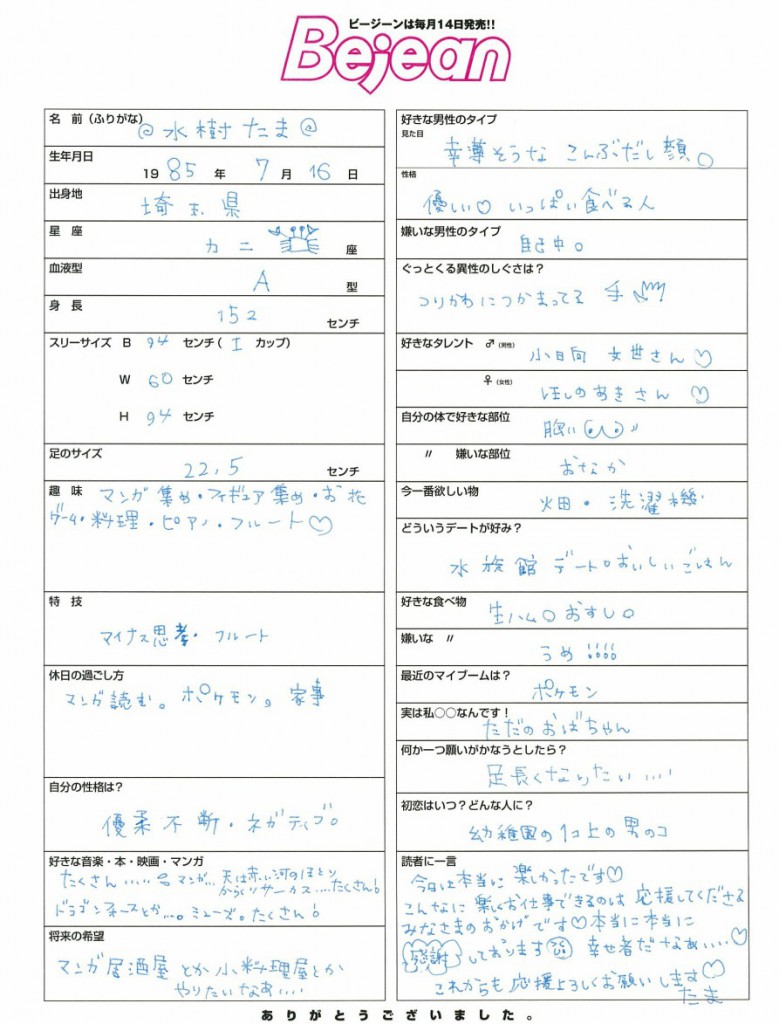 ビージーンは毎月14日発売!!
Bejean
名 前（ふりがな）
@水樹たま@
生年月日
1985年 7月 16日
出身地
埼玉県
星 座
カニ 座
血液型
A 型
身 長
152 センチ
スリーサイズ B 94 センチ( I カップ)
W 60 センチ
H 94 センチ
足のサイズ
22.5 センチ
趣 味 マンガ集め・フィギュア集め・お花
ゲーム・料理・ピアノ・フルート♡
特 技
マイナス思考・フルート
休日の過ごし方
マンガ読む。ポケモン。家事
自分の性格は？
優柔不断・ネガティブ。
好きな音楽・本・映画・マンガ
たくさん…‥ マンガ… 天は赤い河のほとり
からくりサーカス‥‥たくさん!
ドラゴンとか…。ミューズ。たくさん!
将来の希望
マンガ居酒屋とか小料理屋とか
やりたいなあ‥‥
好きな男性のタイプ
見た目
幸薄そうな こんぶだし顔。
性格
優しい♡ いっぱい食べる人
嫌いな男性のタイプ
自己中。
ぐっとくる異性のしぐさは？
つりかわにつかまってる 手
好きなタレント ♂(男性)
小日向 文世さん♡
♀(女性)
ほしのあきさん ♡
自分の体で好きな部位
胸い
〃 嫌いな部位
おなか
今一番欲しい物
畑・洗濯機
どういうデートが好み？
水族館デート。おいしいごはん
好きな食べ物
生ハム。おすし。
嫌いな 〃
うめ!!!!
最近のマイブームは？
ポケモン
実は私○○なんです！
ただのおばちゃん
何か一つ願いがかなうとしたら？
足長くなりたい‥‥
初恋はいつ？どんな人に？
幼稚園の1コ上の男のコ
読者に一言
今日は本当に楽しかったです♡
こんなに楽しくお仕事できるのは応援してくださる
みなさまのおかげです♡本当に本当に
感謝しております 幸せ者だなぁ‥‥♡
これからも応援よろしくお願いします♡
たま
ありがとうございました。